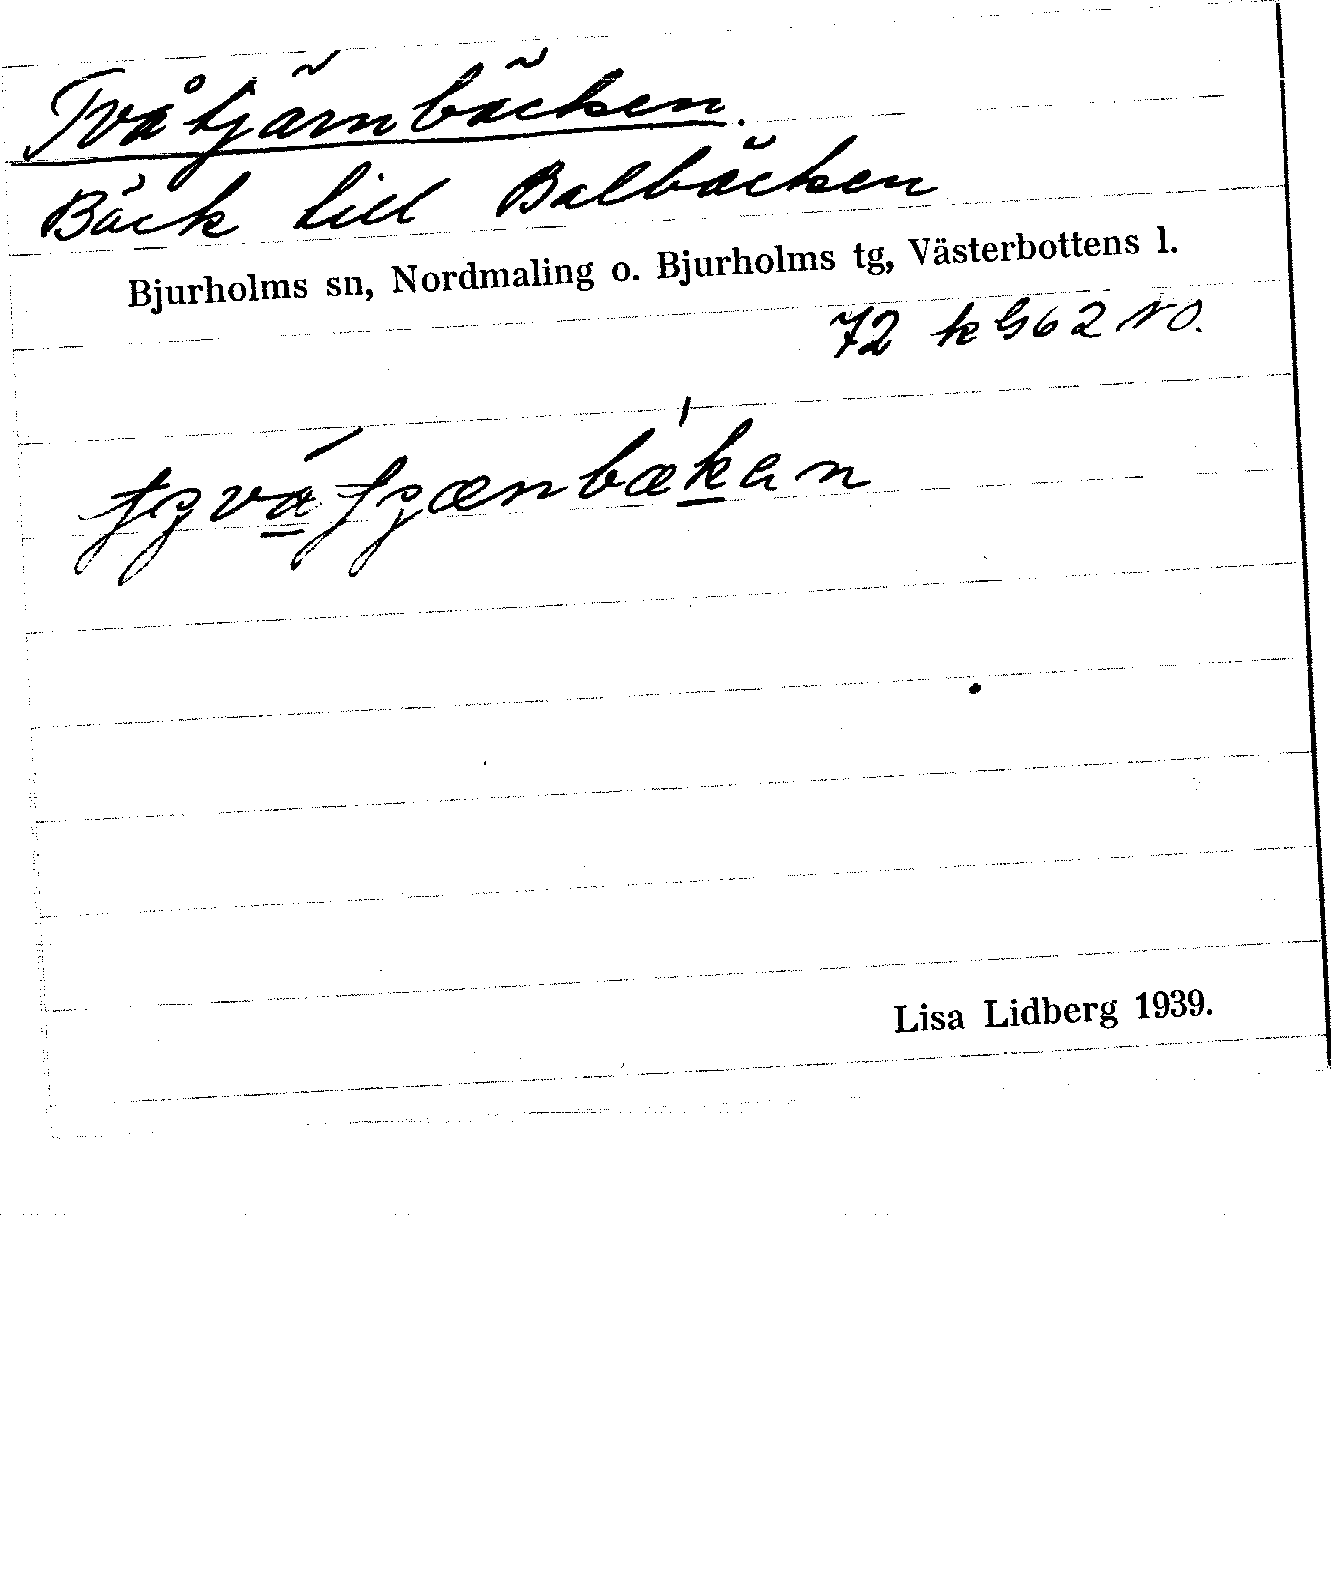 Tvåtjärnbäcken.
Bäck till Balbäcken
Bjurholms sn, Nordmaling o. Bjurholms tg, Västerbottens l.
72 k G62 NO.
Lisa Lidberg 1939.